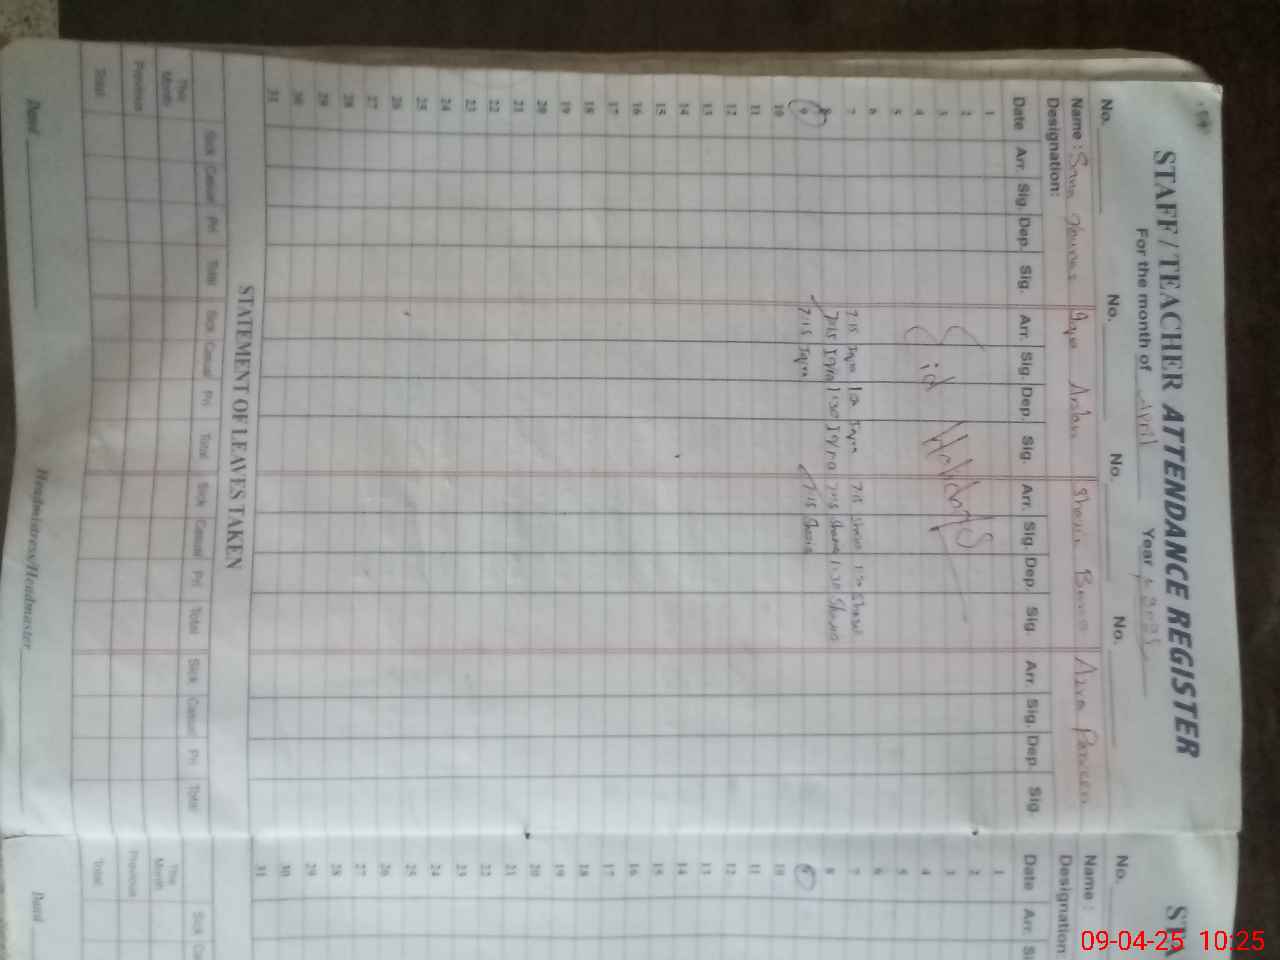 STAFF / TEACHER ATTENDANCE REGISTER
For the month of April Year 2025
No. No. No. No.
Name : Sana Iqra Arslan Shazia Azra Parveen
Designation:
Date Arr. Sig. Dep. Sig. Arr. Sig. Dep. Sig. Arr. Sig. Dep. Sig. Arr. Sig. Dep. Sig.
1
2
3
4
5
6
Eid Holidays
7 7:15 Iqra Iqra 7:15
8 7:15 Iqra 1:30 Iqra 7:15 1:30
9 7:15 Iqra 7:15
10
11
12
13
14
15
16
17
18
19
20
21
22
23
24
25
26
27
28
29
30
31
STATEMENT OF LEAVES TAKEN
Sick Casual Pri Total Sick Casual Pri Total Sick Casual Pri Total Sick Casual Pri Total
This Month
Previous
Total
Dated Headmistress/Headmaster
STA
No.
Name :
Designation
Date Arr. Si
1
2
3
4
5
6
7
8
9
10
11
12
13
14
15
16
17
18
19
20
21
22
23
24
25
26
27
28
29
30
31
Sick Ca
This Month
Previous
Total
Dated
09-04-25 10:25